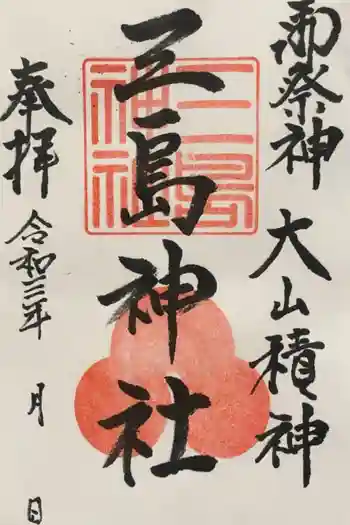 御祭神 大山積神
三島神社
三島神社
奉拝
令和三年 月 日